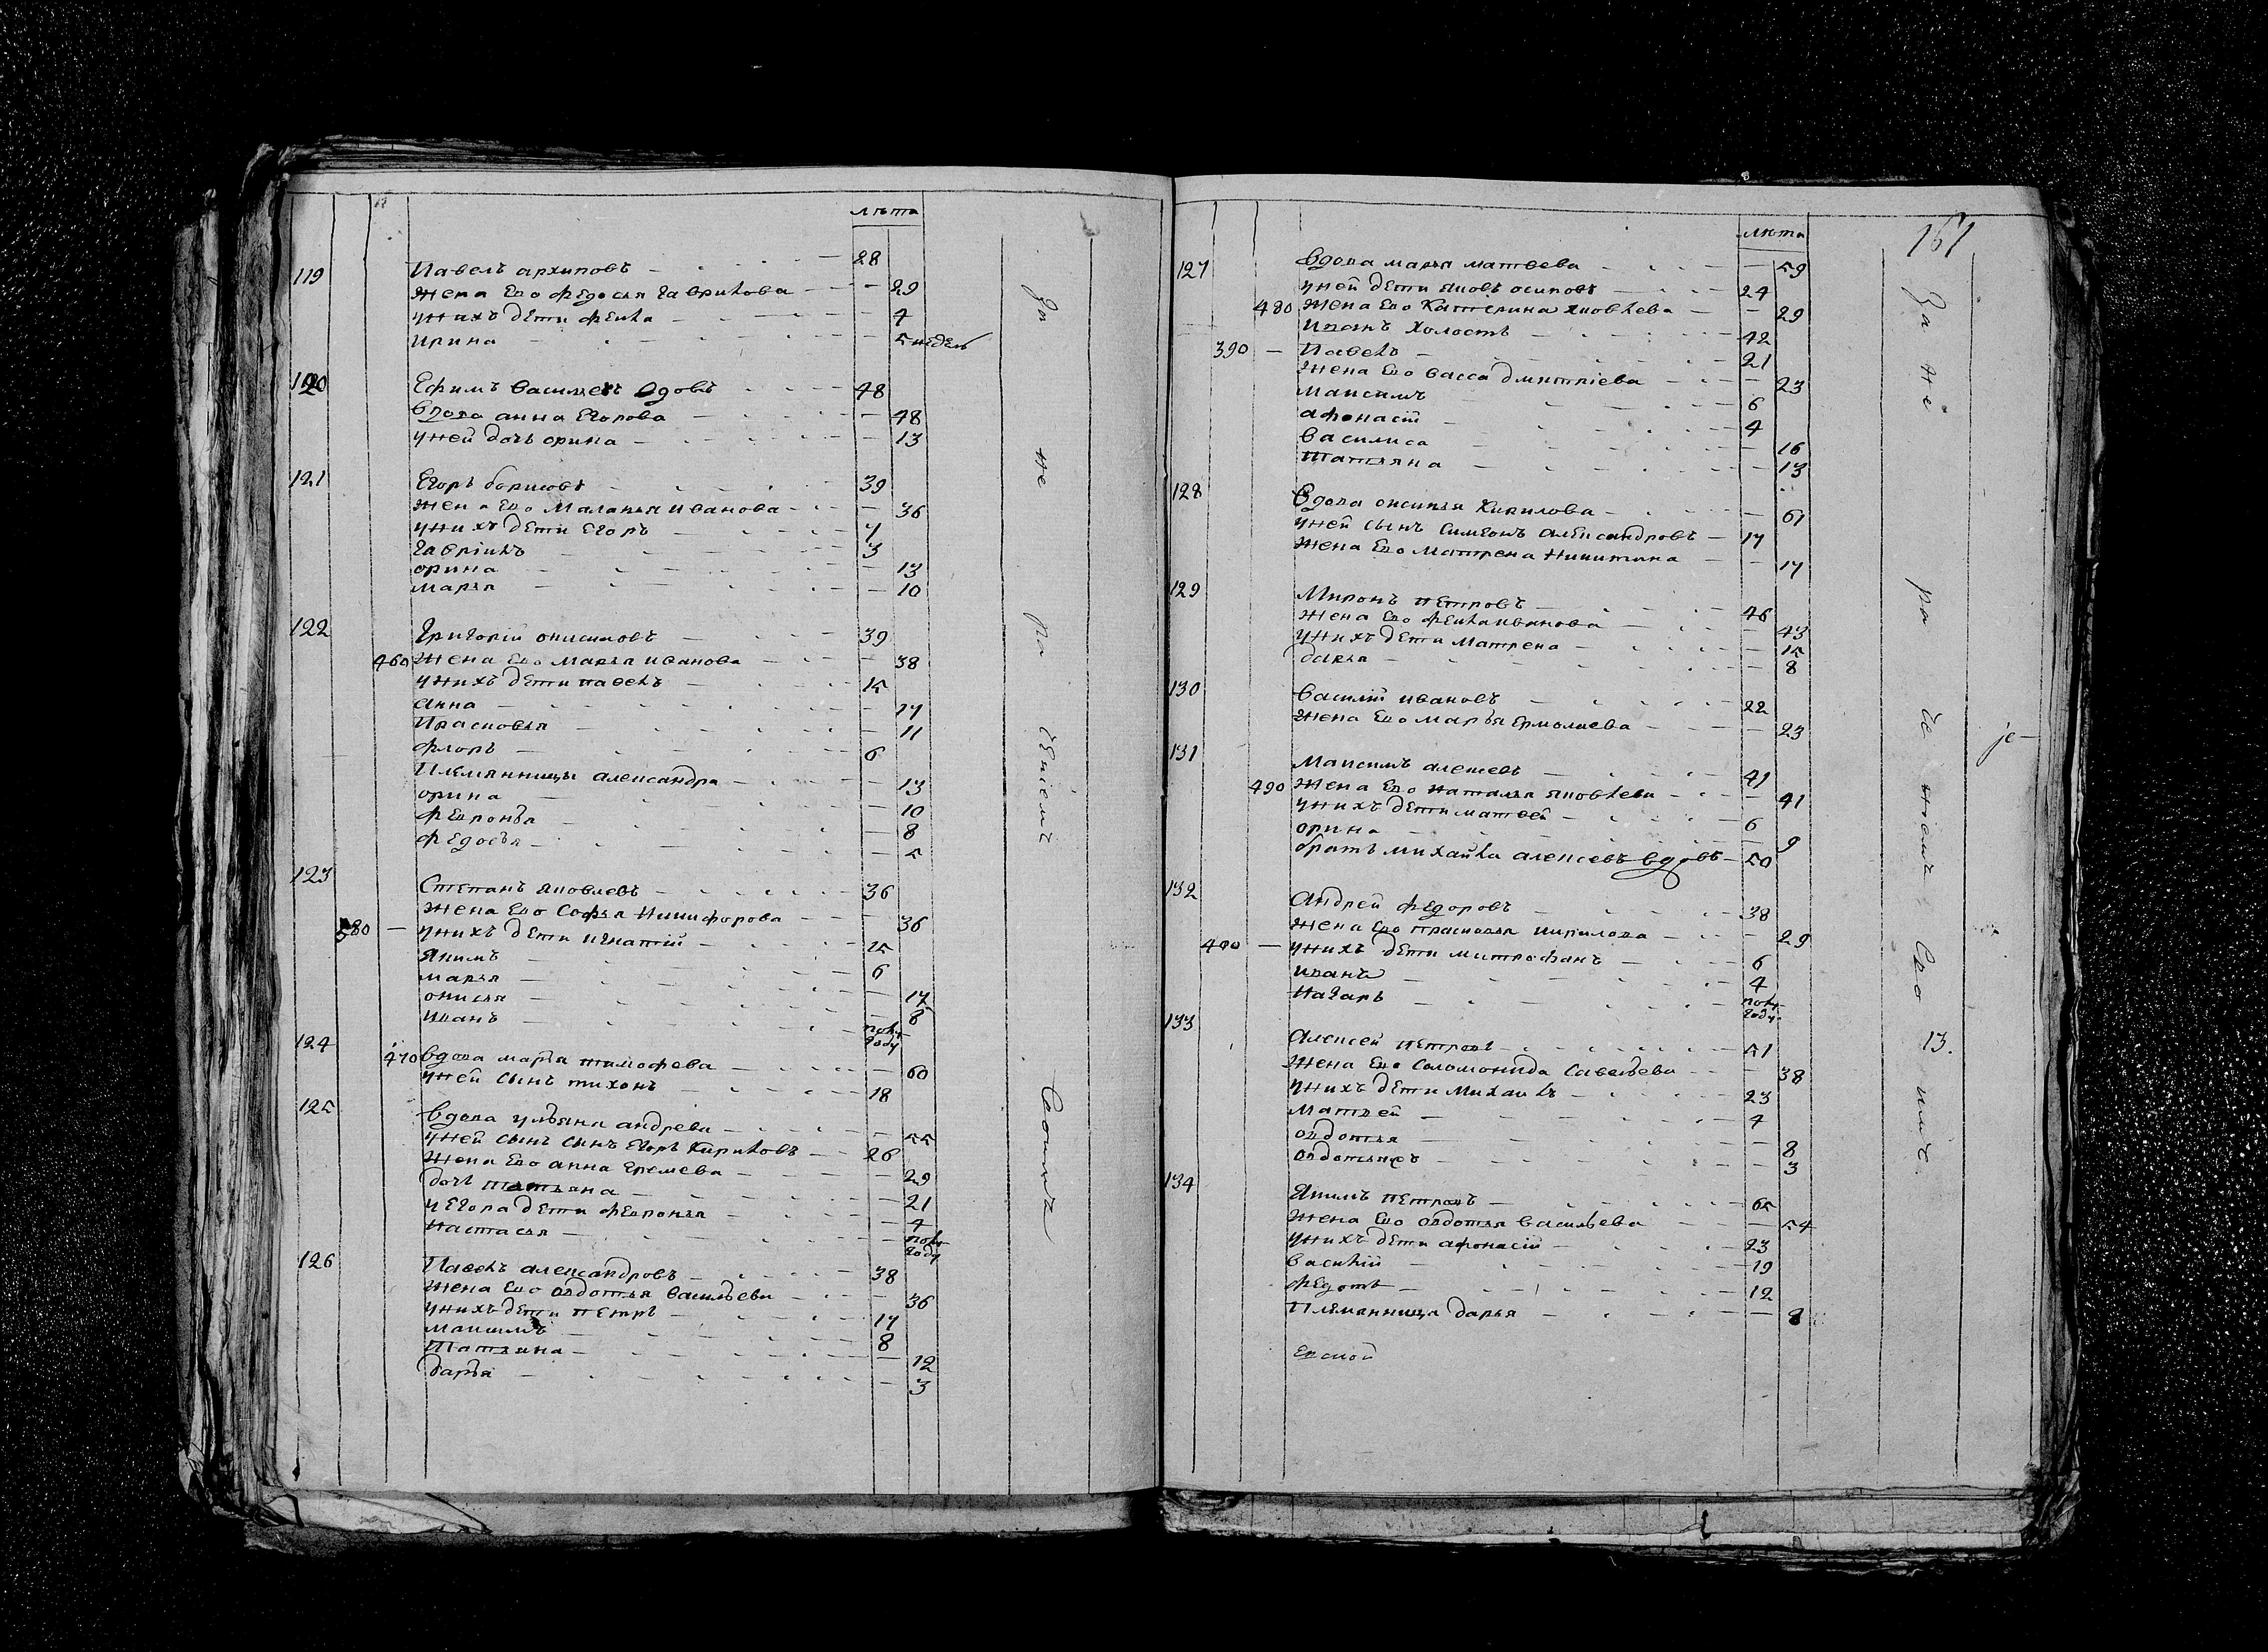 лѣта
119 Павелъ архиповъ 28
жена Ево федосья Гаврилова 29
у нихъ дети фекла 4
Ирина 5 недель
120 Ефимъ васильевъ вдовъ 48
вдова анна Егорова 48
у ней дочь орина 13
121 Егоръ борисовъ 39
жена Ево Маланья иванова 36
у нихъ дети Егоръ 7
гаврилъ 3
орина 13
марья 10
122 Григорій онисимовъ 39
460 жена Ево марья иванова 38
у нихъ дети павелъ 15
анна 17
Прасковья 11
флоръ 6
Племянницы александра 13
орина 10
февронья 8
федосья 5
123 Степанъ яковлевъ 36
жена Ево Софья никифорова 36
380 у нихъ дети игнатій 15
Якимъ 6
марья 17
онисья 8
иванъ полу году
124 470 вдова марья тимофева 60
у ней сынъ тихонъ 18
125 вдова ульяна андрева 55
у ней сынъ сынъ Егоръ Кириловъ 26
жена Ево анна Еремева 29
дочь татьяна 21
у Егора дети февронья 4
настасья полу году
126 Павелъ александровъ 38
жена Ево авдотья васильева 36
у нихъ дети петръ 17
максимъ 8
татьяна 12
дарья 3
За не ра чениемъ Своимъ
161
лѣта
127 вдова марья матвева 59
у ней дети яковъ осиповъ 24
480 жена Ево Катерина яковлева 29
иванъ холостъ 42
390 Павелъ 21
жена Ево васса дмитриева 23
максимъ 6
афонасій 4
василиса 16
татьяна 13
128 вдова онисья Кирилова 61
у ней сынъ симеонъ александровъ 17
жена Ево матрена никитина 17
129 Миронъ петровъ 46
жена Ево фекла иванова 43
у нихъ дети матрена 15
дарья 8
130 василій ивановъ 22
жена Ево марья ермолаева 23
131 Максимъ алексевъ 41
490 жена Ево наталья яковлева 41
у нихъ дети матвей 6
орина 9
братъ михайла алексевъ вдовъ 50
132 андрей федоровъ 38
жена Ево прасковья кирилова 29
400 у нихъ дети митрофанъ 6
иванъ 4
назаръ полу году
133 алексей петровъ 51
жена Ево соломонида савельева 38
у нихъ дети михаилъ 23
матвей 4
авдотья 8
3
134 Якимъ петровъ 65
жена Ево авдотья васильева 54
у нихъ дети афонасій 23
василій 19
федотъ 12
Племянница дарья 8
Евской
За не ра че ниемъ Сво имъ
13.